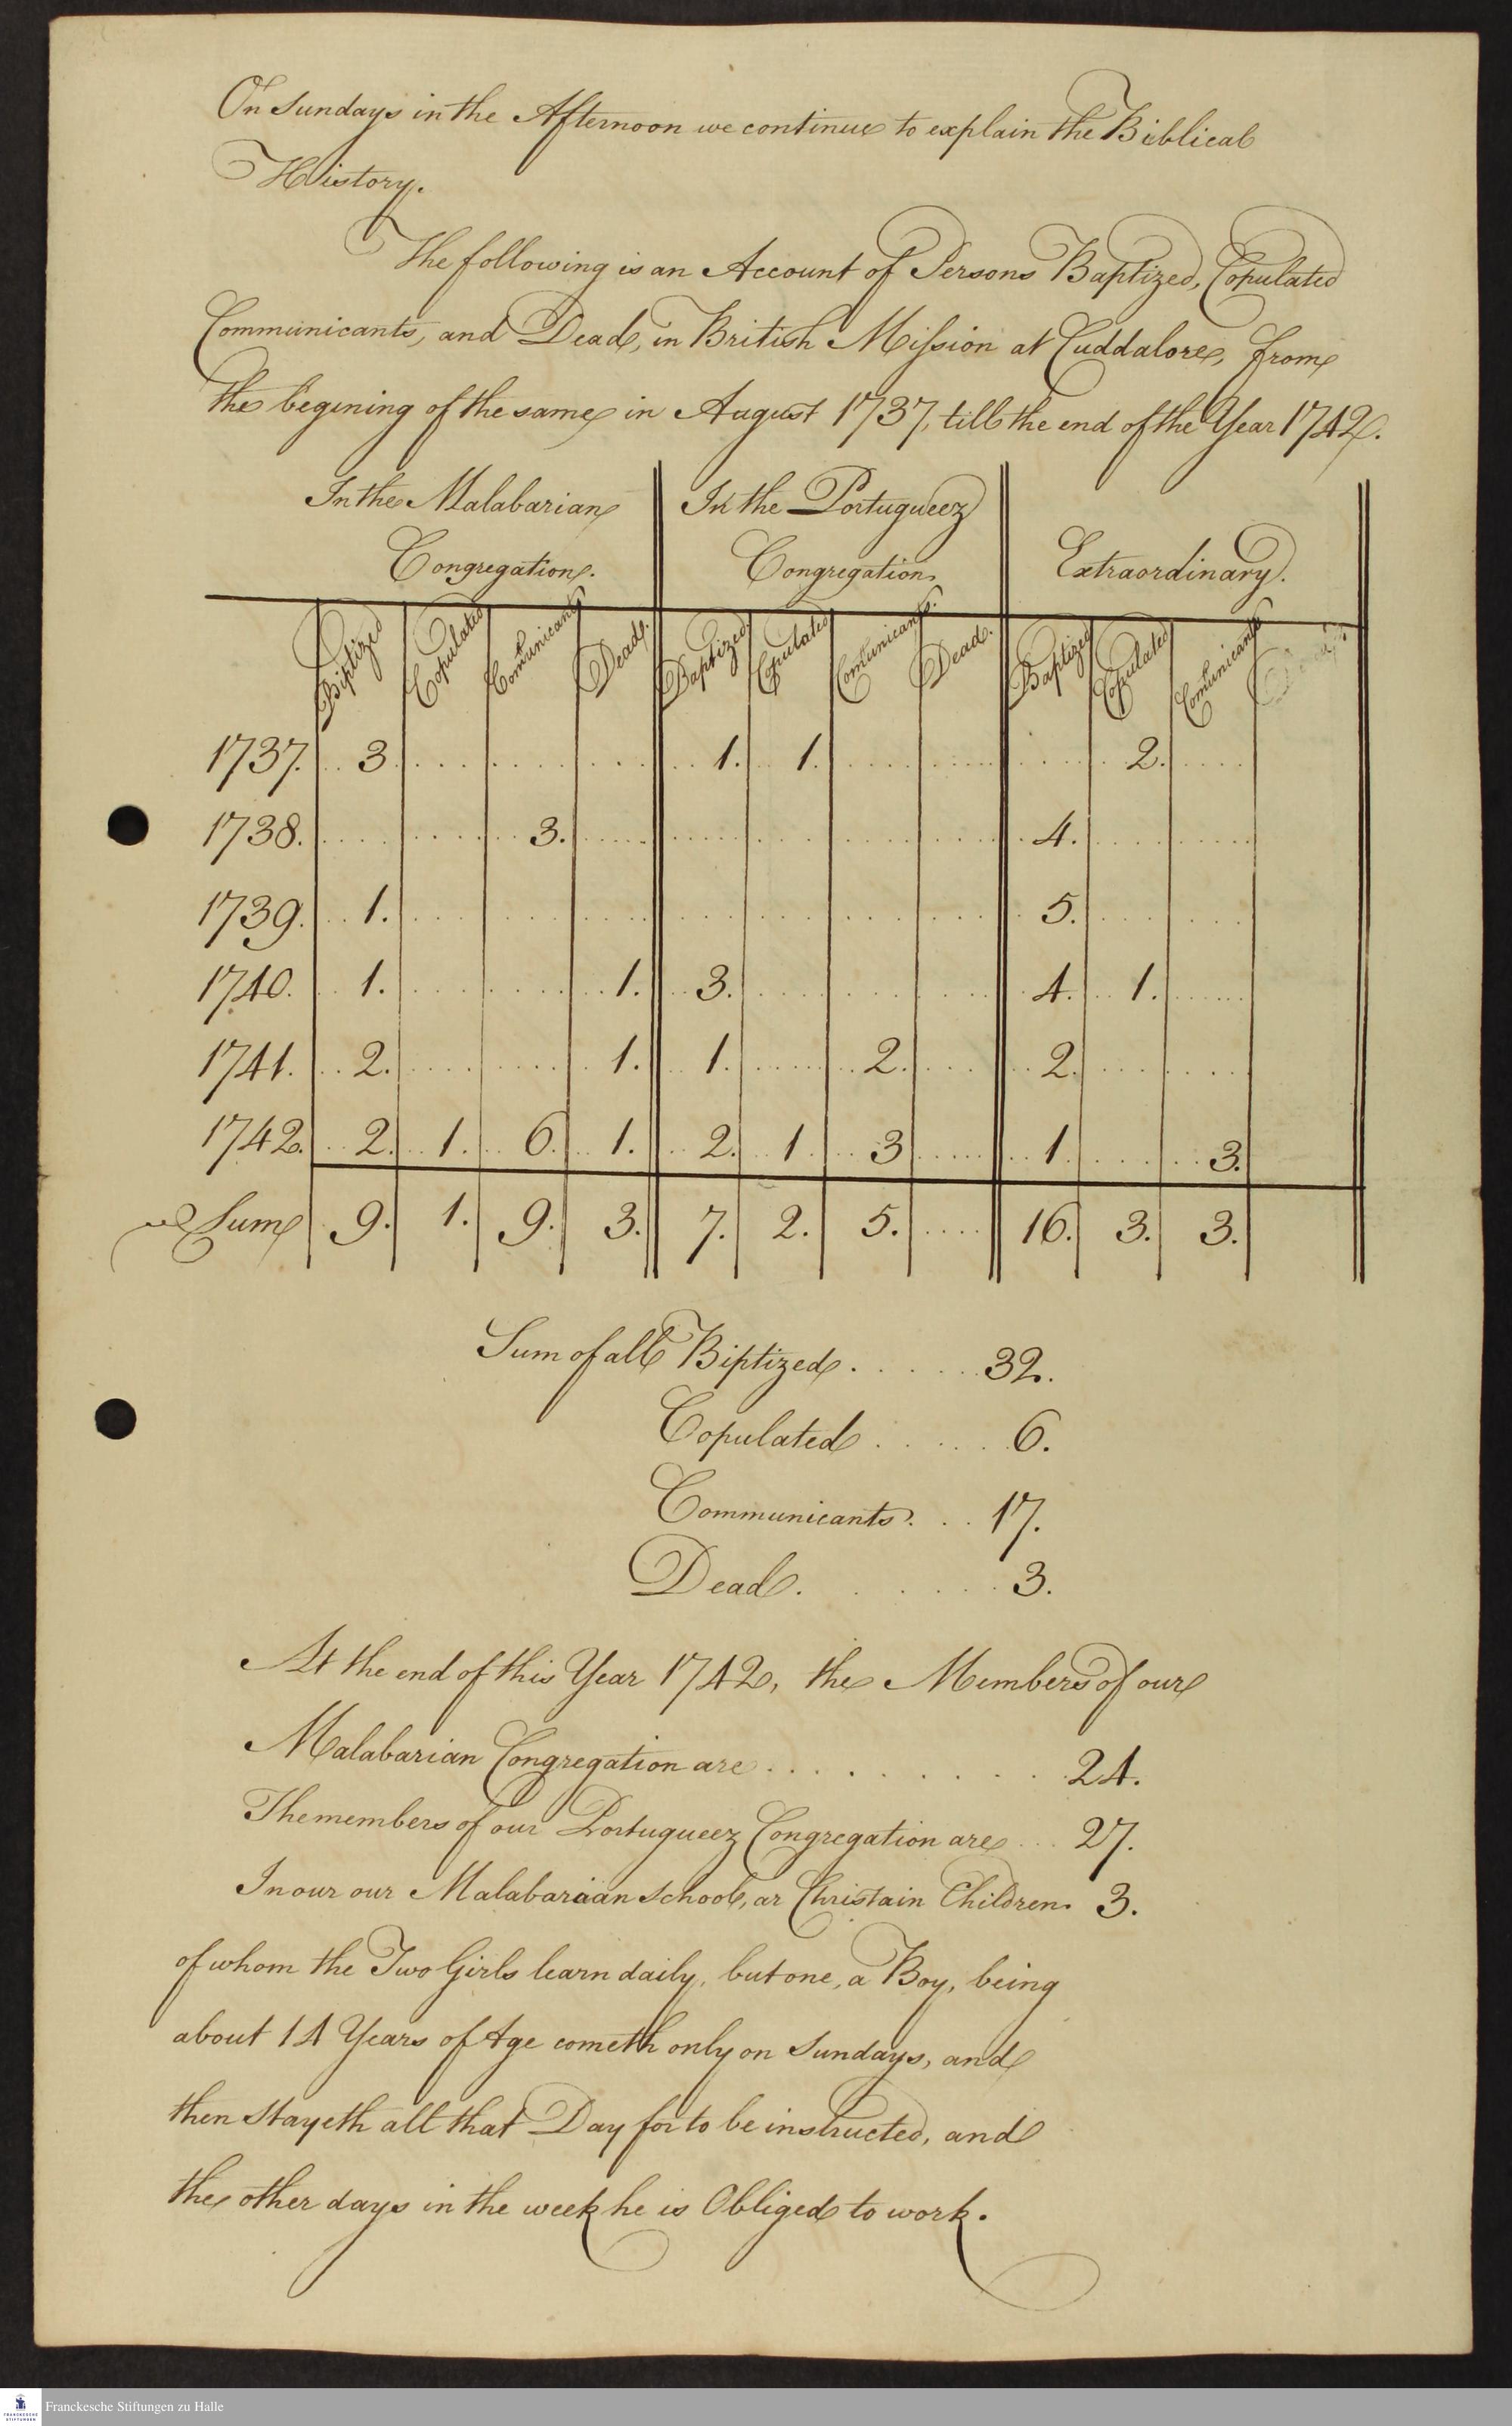 On Sundays in the Afternoon we continue to explain the Biblical
History.
The following is an Account of Persons Baptized, Copulated
Communicants, and Dead, in British Mission at Cuddalore, from
the begining of the same in August 1737, till the end of the Year 1742.
In the Malabarian In the Portugueez
Congregation. Congregation Extraordinary.
Biptized Copulated Comunicants Dead. Baptized Copulated Comunicants. Dead. Baptized Copulated Comunicants Dead
1737. 3 1. 1. 2.
1738. 3. 4.
1739. 1. 5.
1740. 1. 1. 3. 4. 1.
1741. 2. 1. 1. 2. 2.
1742. 2. 1. 6. 1. 2. 1 3 1. 3.
Sum 9. 1. 9. 3. 7. 2. 5. 16. 3. 3.
Sum of all Biptized . . . . . 32.
Copulated . . . . . 6.
Communicants . . . 17.
Dead . . . . . . 3.
At the end of this Year 1742, the Members of our
Malabarian Congregation are . . . . . . . . . . 24.
The members of our Portugueez Congregation are . . . 27.
In our our Malabarian School, ar Christain Children. 3.
of whom the Two Girls learn daily, but one, a Boy, being
about 14 Years of Age cometh only on Sundays, and
then Stayeth all that Day for to be instructed, and
the other days in the week he is Obliged to work.
FRANCKESCHE
STIFTUNGEN
Franckesche Stiftungen zu Halle